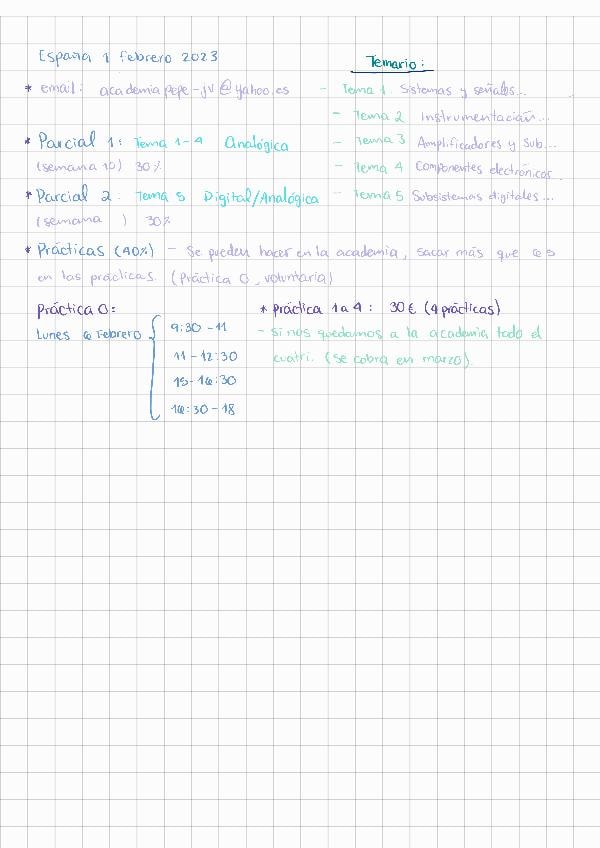 España 1 febrero 2023
Temario:
* email: academiapepe-jv@yahoo.es
- Tema 1 Sistemas y señales...
- Tema 2 Instrumentación...
* Parcial 1: Tema 1-4 Analógica
- Tema 3 Amplificadores y sub...
(semana 10) 30%
- Tema 4 Componentes electrónicos.
* Parcial 2: Tema 5 Digital/Analógica
- Tema 5 Subsistemas digitales...
(semana ) 30%
* Prácticas (40%) - Se pueden hacer en la academia, sacar más que es
en las prácticas. (Práctica 0, voluntaria)
Práctica 0:
* Práctica 1 a 4: 30€ (4 prácticas)
Lunes 6 Febrero
9:30-11
- Si nos quedamos a la academia todo el
11-12:30
cuatri. (se cobra en marzo).
15-16:30
16:30-18